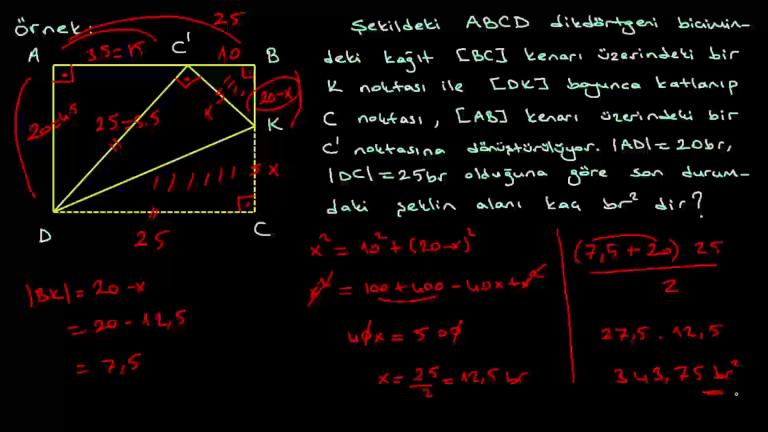 Örnek:
25
A
3.5=15
C'
10
B
20=4.5
25=5.5
x
20-x
K
x
D
25
C
Şekildeki ABCD dikdörtgeni biçimin-
deki kağıt [BC] kenarı üzerindeki bir
K noktası ile [DK] boyunca katlanıp
C noktası, [AB] kenarı üzerindeki bir
C' noktasına dönüştürülüyor. |AD|=20br,
|DC|=25br olduğuna göre son durum-
daki şeklin alanı kaç br² dir?
|BK|=20-x
=20-12,5
=7,5
x²=10²+(20-x)²
x²=100+400-40x+x²
40x=500
x=25/2=12,5 br
(7,5+20).25
2
27,5.12,5
343,75 br²